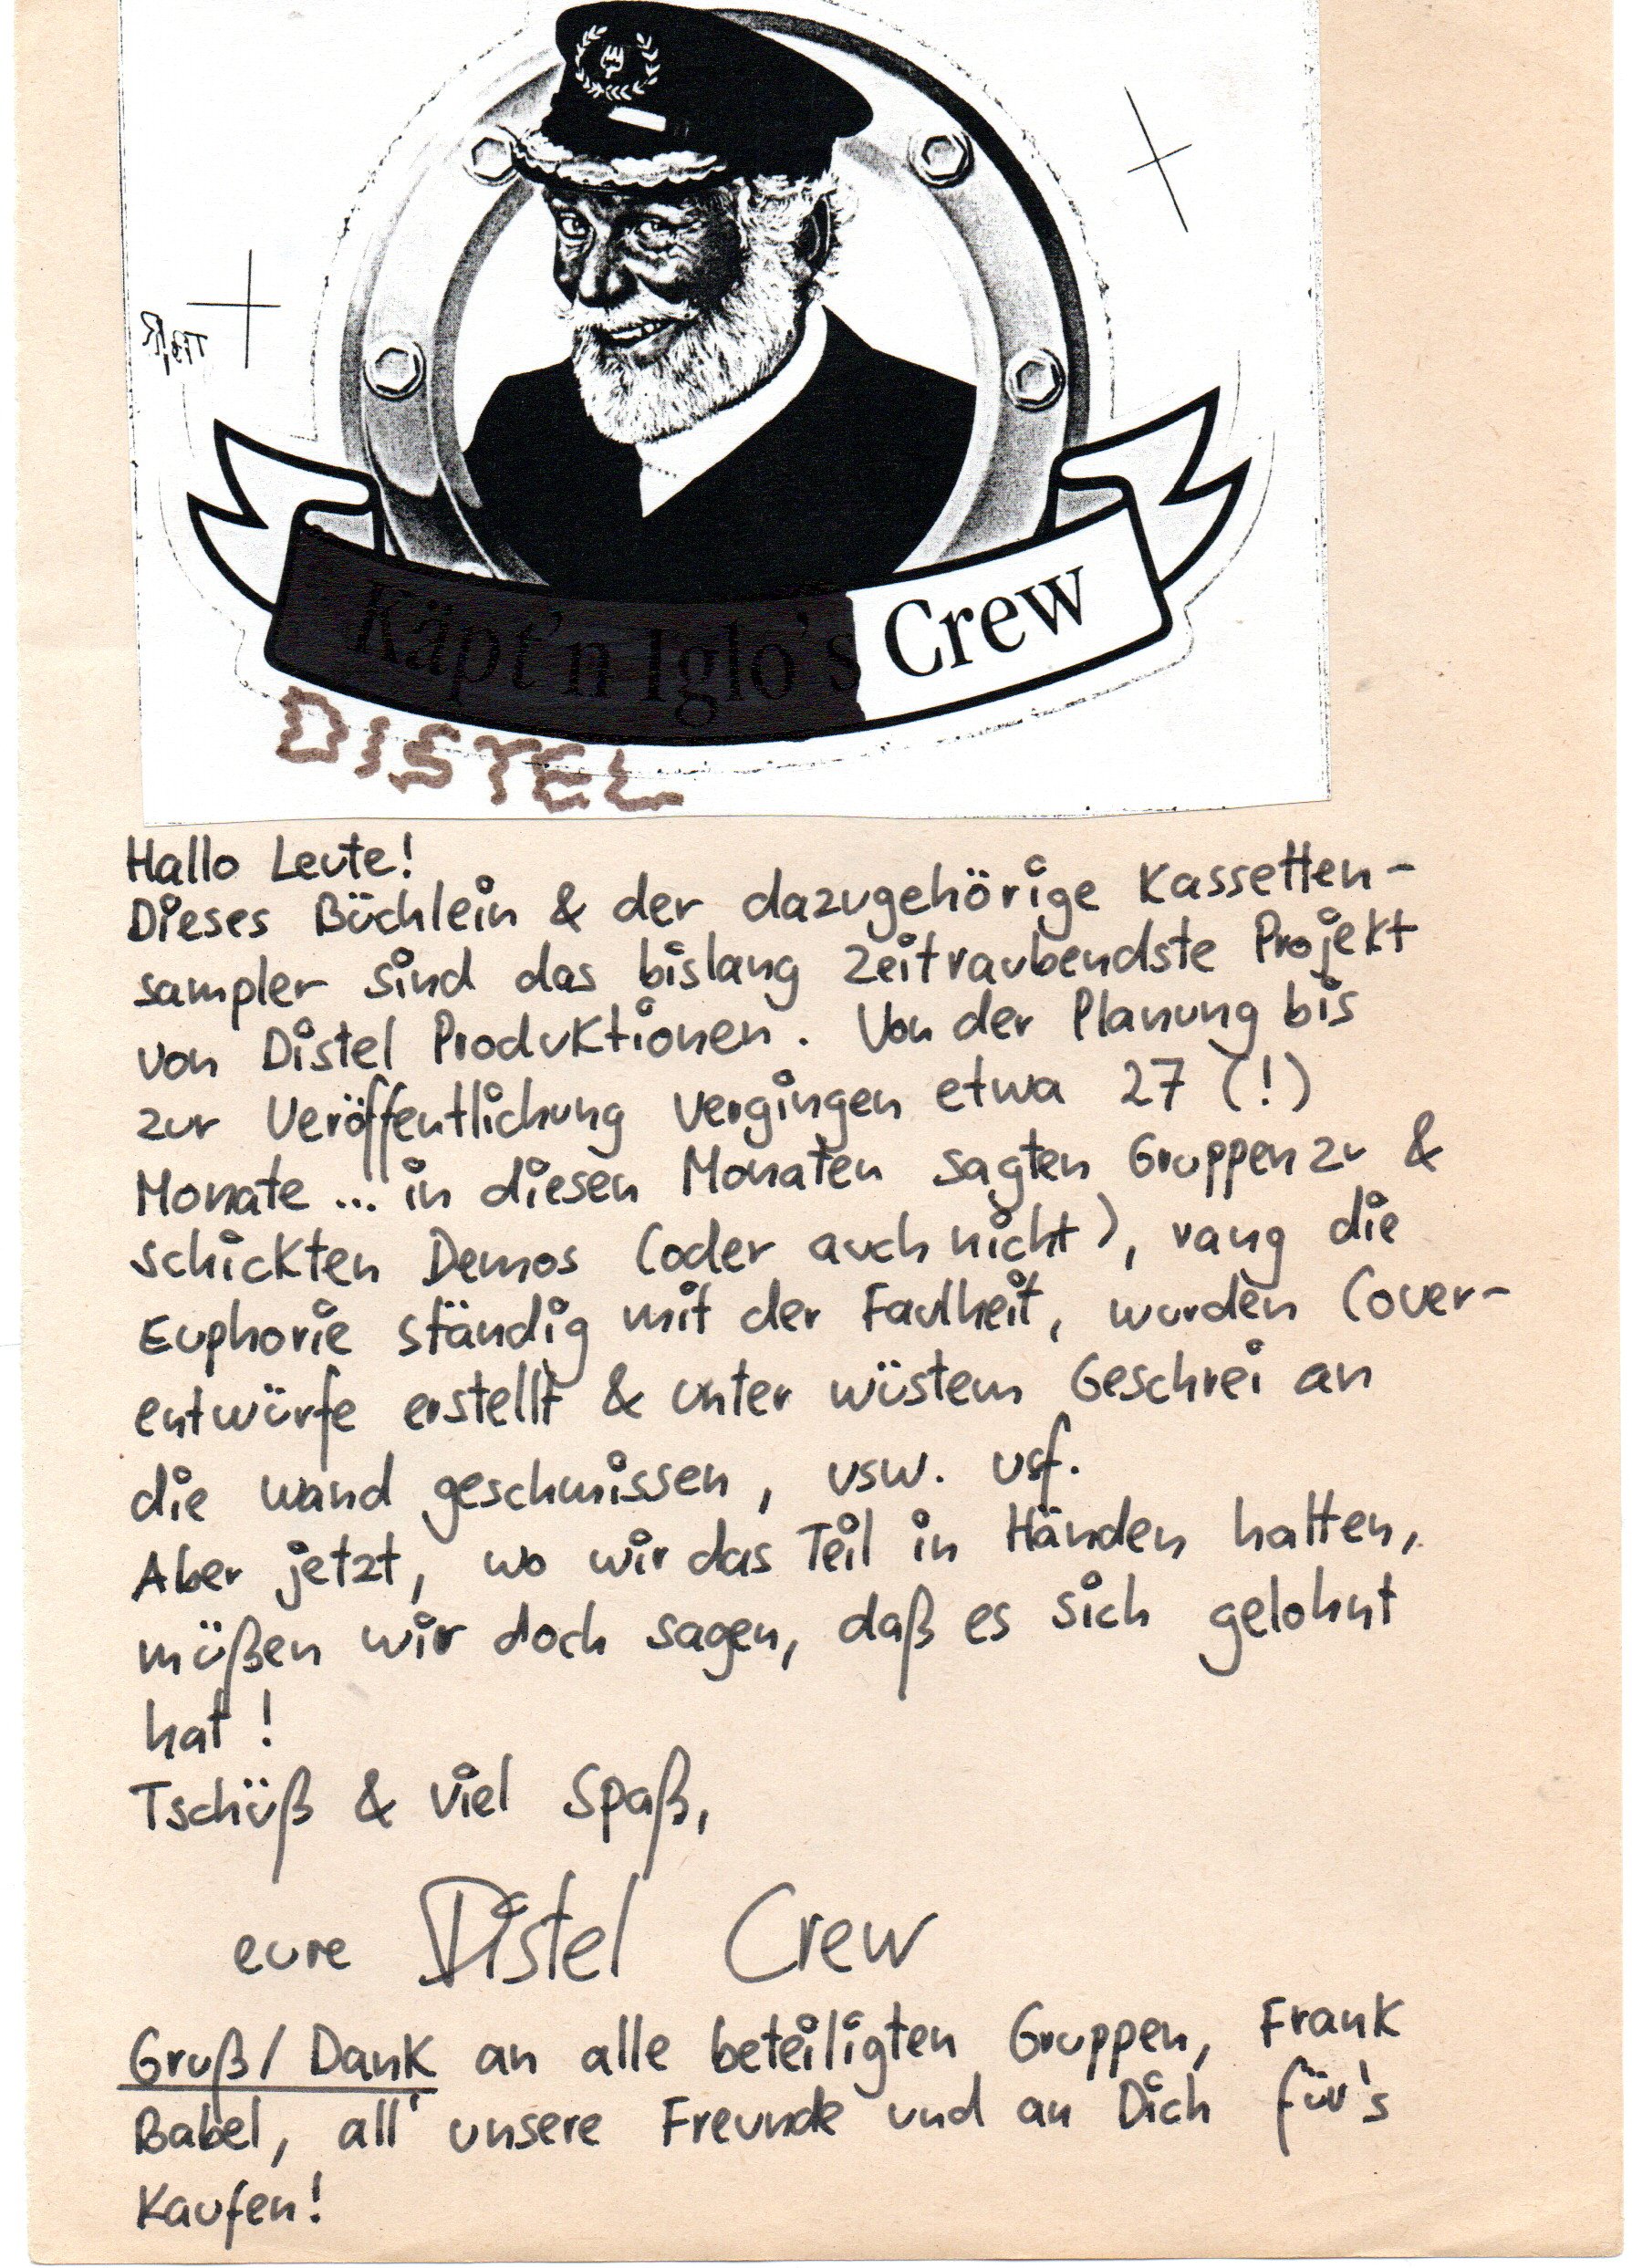 Käpt'n Iglo's Crew
DISTEL
Hallo Leute!
Dieses Büchlein & der dazugehörige Kassetten-
sampler sind das bislang zeitraubendste Projekt
von Distel Produktionen. Von der Planung bis
zur Veröffentlichung vergingen etwa 27 (!)
Monate ... in diesen Monaten sagten Gruppen zu &
schickten Demos (oder auch nicht), rang die
Euphorie ständig mit der Faulheit, wurden Cover-
entwürfe erstellt & unter wüstem Geschrei an
die Wand geschmissen, usw. usf.
Aber jetzt, wo wir das Teil in Händen halten,
müßen wir doch sagen, daß es sich gelohnt
hat!
Tschüß & viel Spaß,
eure Distel Crew
Gruß/Dank an alle beteiligten Gruppen, Frank
Babel, all' unsere Freunde und an Dich für's
Kaufen!